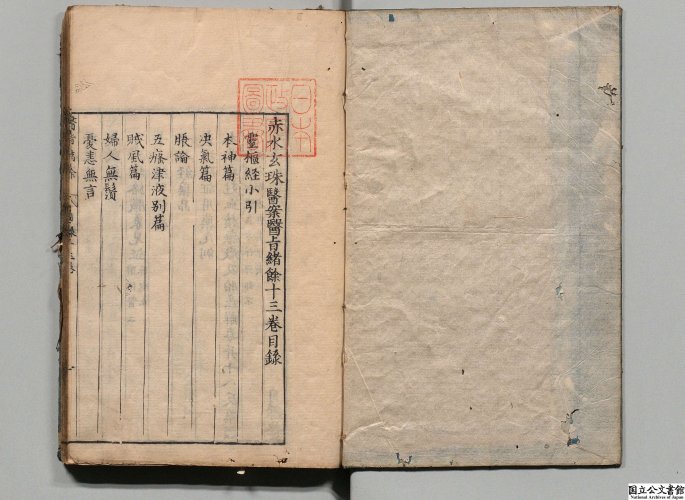 赤水玄珠醫案醫旨緒餘十三卷目錄
靈樞經小引
本神篇
決氣篇
脹論
五癃津液別篇
賊風篇
婦人無鬚
憂恚無言
日本
圖書
国立公文書館
National Archives of Japan